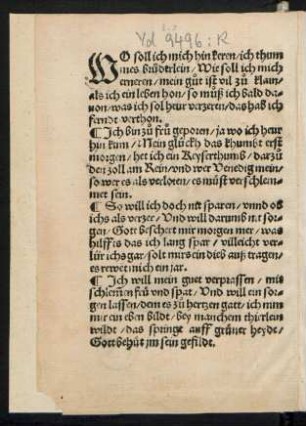 Yd 9496 : R
WO soll ich mich hin keren/ ich thum
mes brüderlein/ Wie soll ich mich
erneren/ mein gut ist vil zů klain/
als ich ein leben hon/ so můß ich bald da
uon/ was ich sol heur verzeren/ das hab ich
ferndt verthon.
¶ Ich bin zů frů geporen/ ja wo ich heur
hin kum/ Mein glückh das khumbt erst
morgen/ het ich ein Keyserthumb/ darzů
den zoll am Rein/ und wer Venedig mein/
so wer es als verloren/ es můst verschlem-
met sein.
¶ So will ich doch nit sparen/ unnd ob
ichs als verzer/ Und will darumb nit sor-
gen/ Gott beschert mir morgen mer/ was
hilfft es das ich lang spar/ villeicht ver-
lür ichs gar/ solt mirs ein dieb auß tragen/
es rewet mich ein jar.
¶ Ich will mein guet verprassen/ mit
schlemen frů und spat/ Und will ein sor-
gen lassen/ dem es zů hertzen gatt/ ich nim
mir ein eben bildt/ bey manchem thierlein
wildt/ das springt auff grüner heyde/
Gott behüt im sein gefildt.